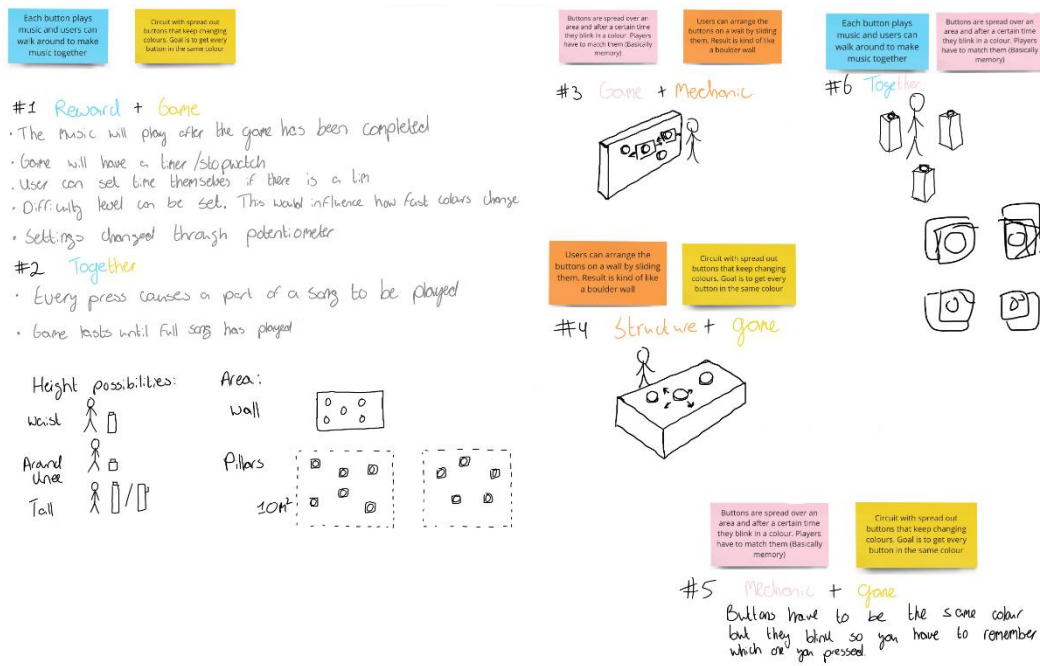 Each button plays
music and users can
walk around to make
music together
Circuit with spread out
buttons that keep changing
colours. Goal is to get every
button in the same colour
#1 Reward + Game
· The music will play after the game has been completed
· Game will have a timer/stopwatch
· User can set time themselves if there is a tim
· Difficulty level can be set. This would influence how fast colours change
· Settings changed through potentiometer
#2 Together
· Every press causes a part of a song to be played
· Game lasts until full song has played
Height possibilities:
Waist
Around
knee
Tall
Area:
Wall
Pillars
10m²
Buttons are spread over an
area and after a certain time
they blink in a colour. Players
have to match them (Basically
memory)
Users can arrange the
buttons on a wall by sliding
them. Result is kind of like
a boulder wall
#3 Game + Mechanic
Users can arrange the
buttons on a wall by sliding
them. Result is kind of like
a boulder wall
Circuit with spread out
buttons that keep changing
colours. Goal is to get every
button in the same colour
#4 Structure + game
Buttons are spread over an
area and after a certain time
they blink in a colour. Players
have to match them (Basically
memory)
Circuit with spread out
buttons that keep changing
colours. Goal is to get every
button in the same colour
#5 Mechanic + game
Buttons have to be the same colour
but they blink so you have to remember
which one you pressed.
Each button plays
music and users can
walk around to make
music together
Buttons are spread over an
area and after a certain time
they blink in a colour. Players
have to match them (Basically
memory)
#6 Together